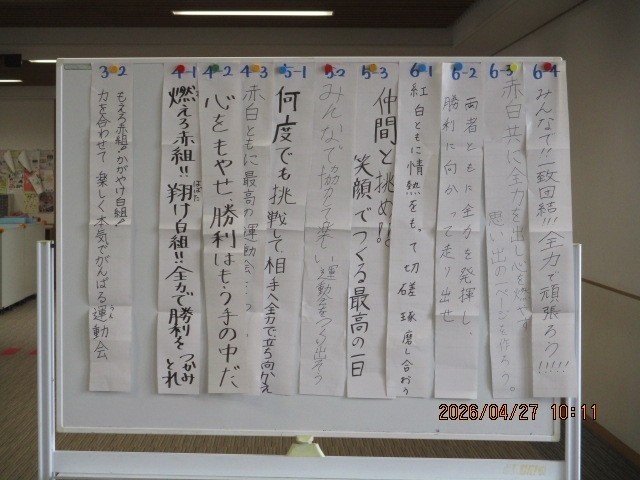 3-2
もえろ赤組!!かがやけ白組!!
力を合わせて 楽しく本気でがんばる運動会
4-1
燃えろ赤組!! 翔け白組!! 全力で勝利をつかみとれ
はばた
4-2
心をもやせ 勝利はもう手の中だ、
4-3
赤白ともに最高の運動会
5-1
何度でも挑戦して相手へ全力で立ち向かえ
5-2
みんなで協力して楽しい運動会をつくり出そう
5-3
仲間と挑め!!
笑顔でつくる最高の一日
6-1
紅白ともに情熱をもって切磋琢磨し合おう
6-2
両者ともに全力を発揮し、
勝利に向かって走り出せ
6-3
赤白共に全力を出し心を燃やす
思い出の一ページを作ろう。
6-4
みんなで!!一致団結!!!全力で頑張ろう!!!!!
2026/04/27 10:11